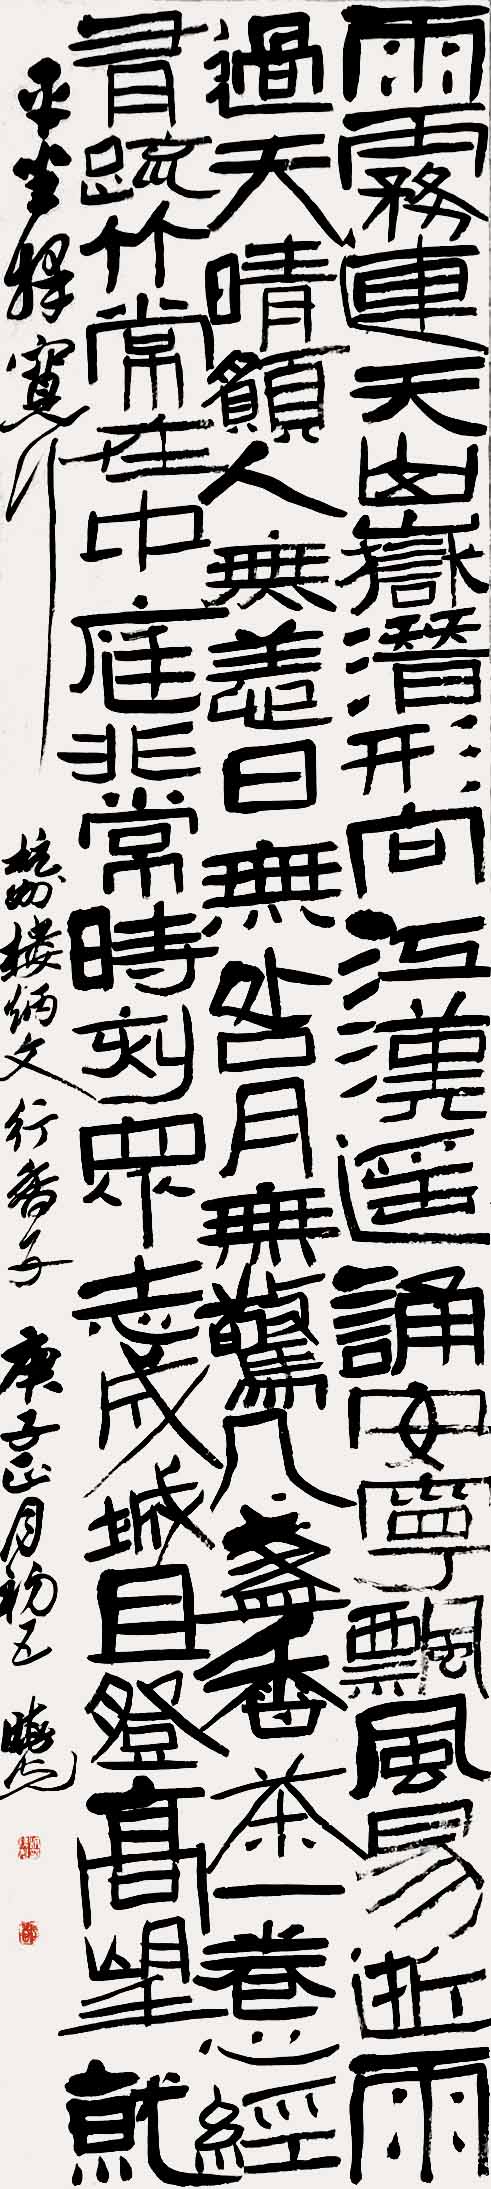 雨霧連天山嶽潛形向江漢遙誦安寧飄風易逝雨
過天晴願人無恙日無咎月無驚几盞香茶一卷心經
看疏竹常在中庭非常時刻眾志成城且登高望就
平坐擇寬行
杭州樓炳文行香子 庚子正月初五